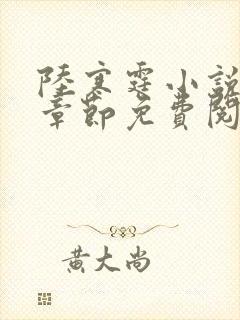 陸寒霆小說
章節免費閱
黃大尚